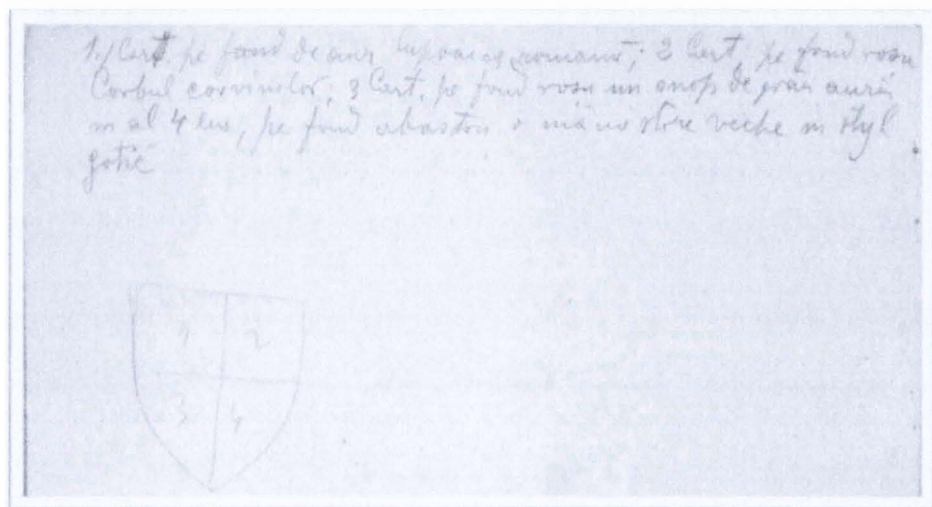 1./ Cart. pe fond de aur lupoaica romană; 2 Cart, pe fond roșu
Corbul corvinilor; 3 Cart. pe fond roșu un snop de grâu auriu
în al 4 lea, pe fond albastru o mănăstire veche în styl
gotic
1 2
3 4